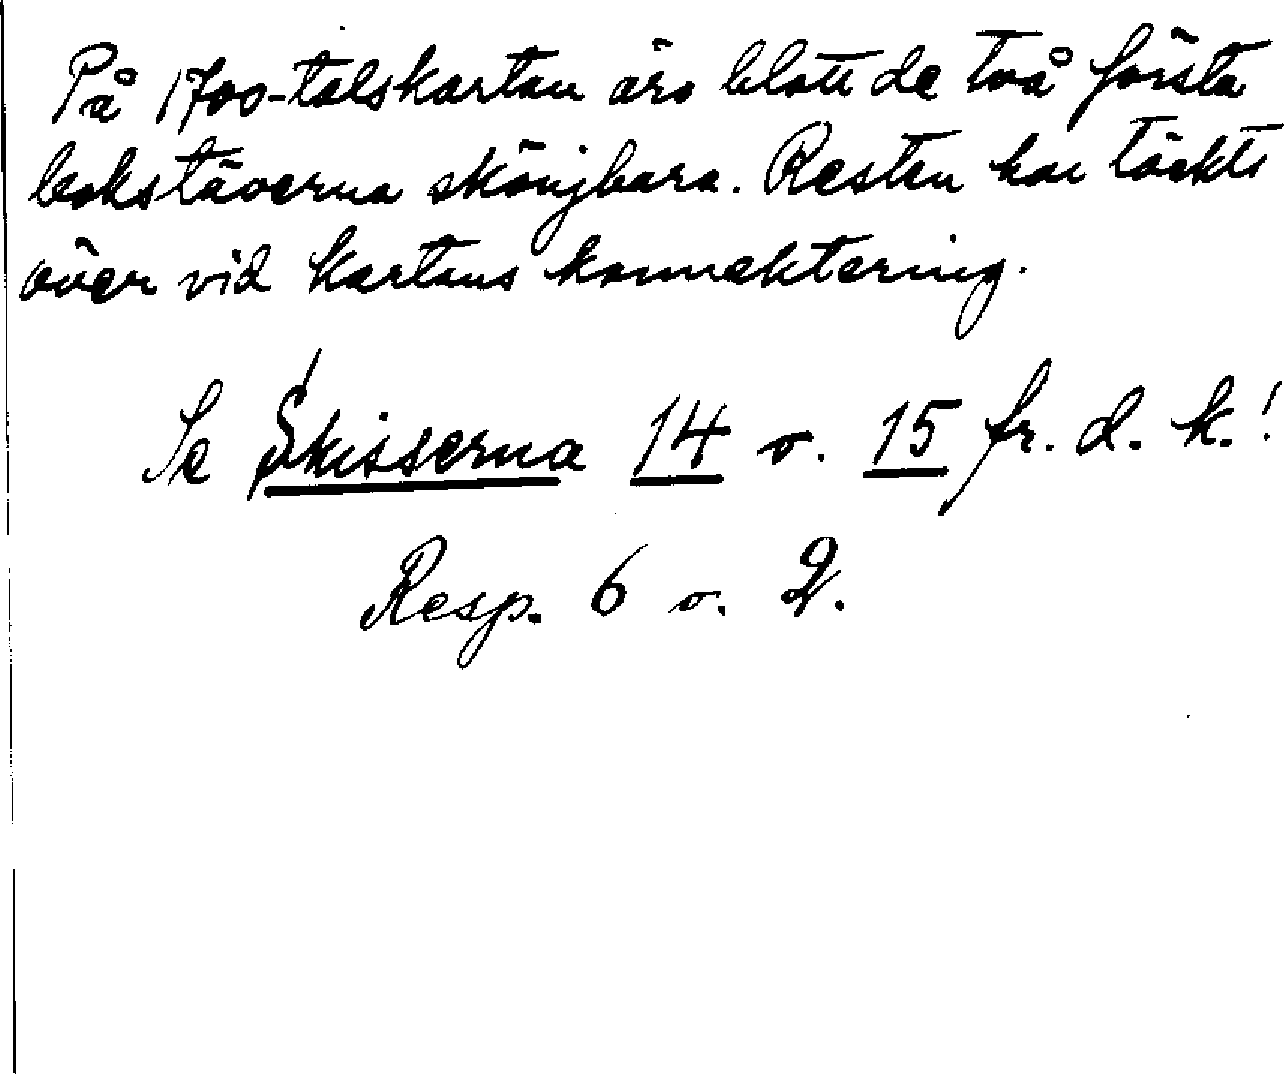 På 1700-talskartan äro blott de två första
bokstäverna skönjbara. Resten har täckts
över vid kartans konnektering.
Se Skisserna 14 o. 15 fr. d. k.!
Resp. 6 o. 2.